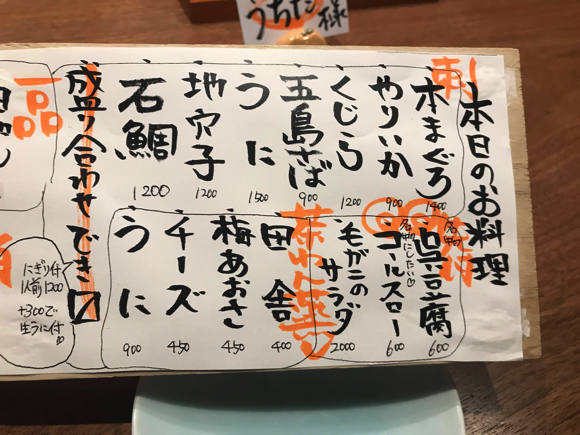 うちだ様
本日のお料理
刺
本まぐろ 1400
やりいか 900
くじら 1200
五島さば 900
うに 1500
地穴子 1200
石鯛 1200
盛り合わせでき〼
にぎり付
1人前1200
+300で
生うに付♡
名物
呉豆腐 600
名物にしたい♡
コールスロー 600
毛ガニの
サラダ 2000
茶わん蒸し
田舎 400
梅あおさ 450
チーズ 450
うに 900
一品